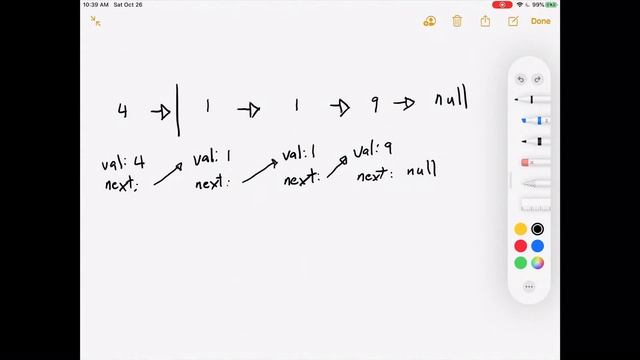 10:39 AM Sat Oct 26
99%
Done
4 → | 1 → 1 → 9 → null
val: 4 val: 1 val: 1 val: 9
next: next: next: next: null